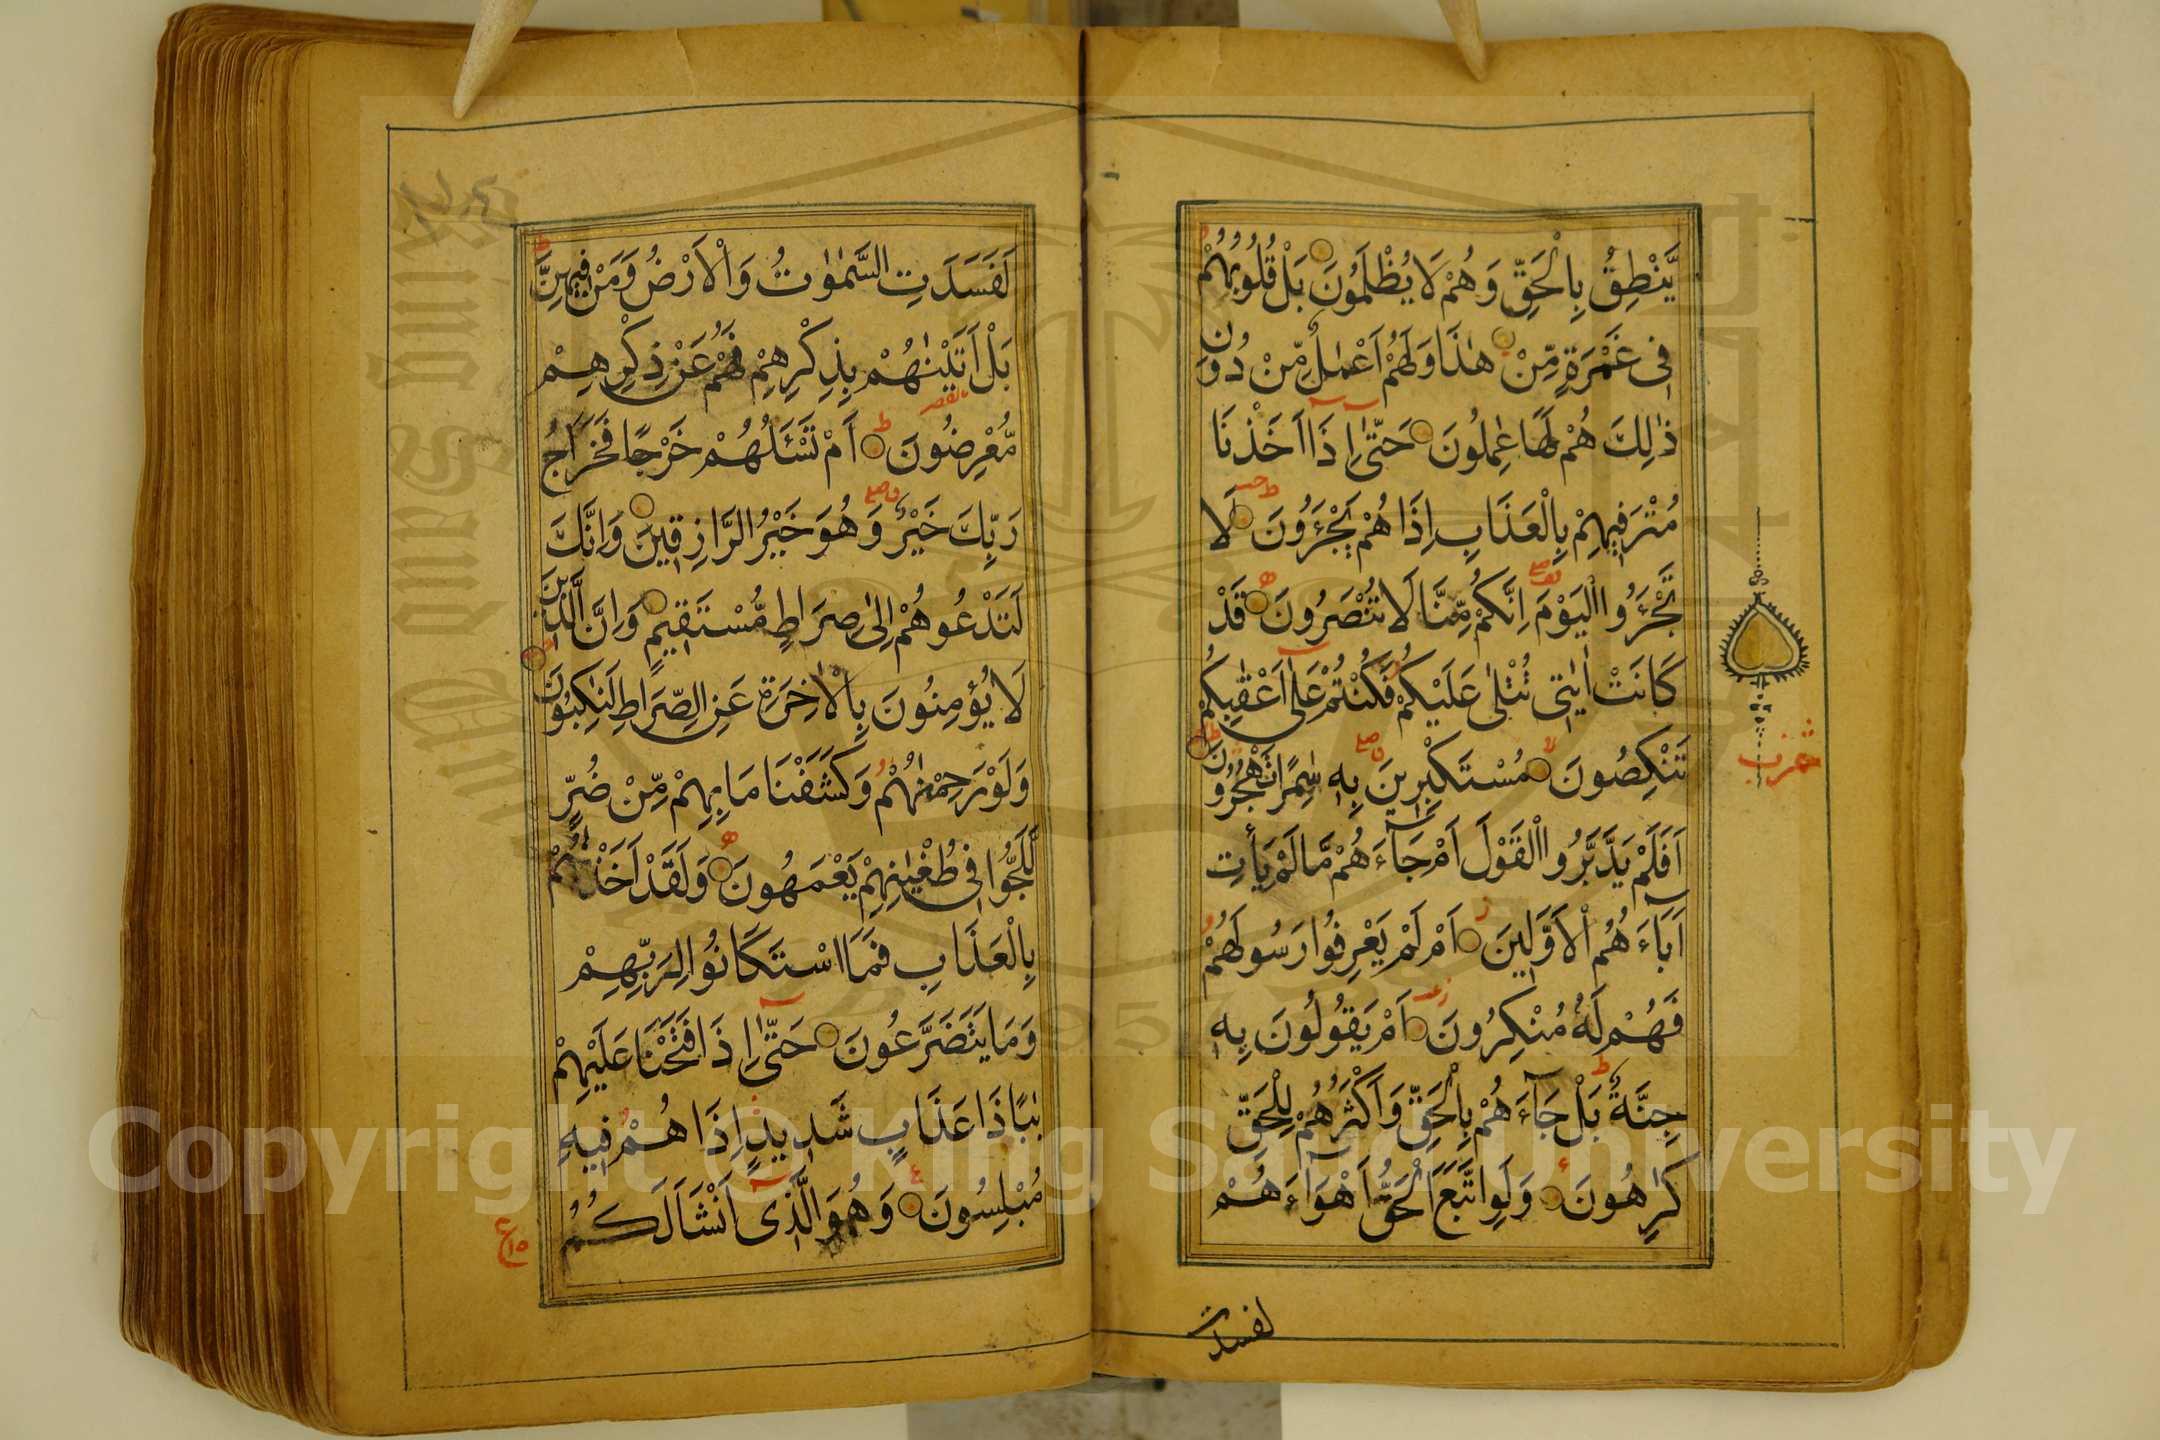 يَّنْطِقُ بِالْحَقِّ وَهُمْ لَا يُظْلَمُوْنَ بَلْ قُلُوْبُهُمْ
فِى غَمْرَةٍ مِّنْ هٰذَا وَلَهُمْ اَعْمٰلٌ مِّنْ دُوْنِ
ذٰلِكَ هُمْ لَهَا عٰمِلُوْنَ حَتّٰى اِذَا اَخَذْنَا
مُتْرَفِيْهِمْ بِالْعَذَابِ اِذَا هُمْ يَجْئَرُوْنَ لَا
تَجْئَرُوا الْيَوْمَ اِنَّكُمْ مِّنَّا لَا تُنْصَرُوْنَ قَدْ
كَانَتْ اٰيٰتِى تُتْلٰى عَلَيْكُمْ فَكُنْتُمْ عَلٰى اَعْقٰبِكُمْ
تَنْكِصُوْنَ مُسْتَكْبِرِيْنَ بِهٖ سٰمِرًا تَهْجُرُوْنَ
اَفَلَمْ يَدَّبَّرُوا الْقَوْلَ اَمْ جَآءَهُمْ مَّا لَمْ يَأْتِ
اٰبَآءَهُمُ الْاَوَّلِيْنَ اَمْ لَمْ يَعْرِفُوْا رَسُوْلَهُمْ
فَهُمْ لَهٗ مُنْكِرُوْنَ اَمْ يَقُوْلُوْنَ بِهٖ
جِنَّةٌ بَلْ جَآءَهُمْ بِالْحَقِّ وَاَكْثَرُهُمْ لِلْحَقِّ
كٰرِهُوْنَ وَلَوِ اتَّبَعَ الْحَقُّ اَهْوَآءَهُمْ
لفسدت
لَفَسَدَتِ السَّمٰوٰتُ وَالْاَرْضُ وَمَنْ فِيْهِنَّ
بَلْ اَتَيْنٰهُمْ بِذِكْرِهِمْ فَهُمْ عَنْ ذِكْرِهِمْ
مُّعْرِضُوْنَ اَمْ تَسْئَلُهُمْ خَرْجًا فَخَرَاجُ
رَبِّكَ خَيْرٌ وَهُوَ خَيْرُ الرَّازِقِيْنَ وَاِنَّكَ
لَتَدْعُوْهُمْ اِلٰى صِرَاطٍ مُّسْتَقِيْمٍ وَاِنَّ الَّذِيْنَ
لَا يُؤْمِنُوْنَ بِالْاٰخِرَةِ عَنِ الصِّرَاطِ لَنٰكِبُوْنَ
وَلَوْ رَحِمْنٰهُمْ وَكَشَفْنَا مَا بِهِمْ مِّنْ ضُرٍّ
لَّلَجُّوْا فِى طُغْيٰنِهِمْ يَعْمَهُوْنَ وَلَقَدْ اَخَذْنٰهُمْ
بِالْعَذَابِ فَمَا اسْتَكَانُوْا لِرَبِّهِمْ
وَمَا يَتَضَرَّعُوْنَ حَتّٰى اِذَا فَتَحْنَا عَلَيْهِمْ
بَابًا ذَا عَذَابٍ شَدِيْدٍ اِذَا هُمْ فِيْهِ
مُبْلِسُوْنَ وَهُوَ الَّذِى اَنْشَاَ لَكُمُ
Copyright © King Saud University
1957